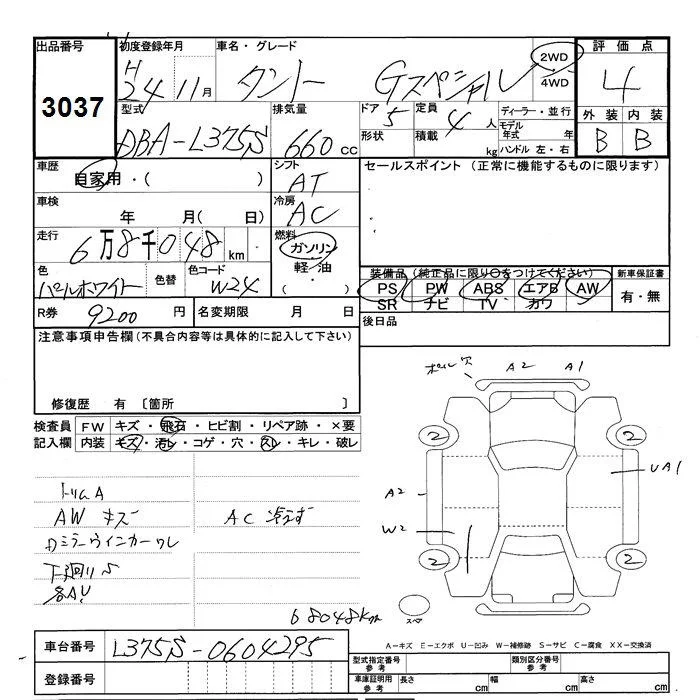 出品番号 初度登録年月 車名・グレード 評価点
3037 H24 11月 タント Gスペシャル 2WD 4WD 4
型式 排気量 ドア 5 定員 4 人 ディーラー・並行 外装 内装
DBA-L375S 660 cc 形状 積載 kg モデル年式 年 ハンドル 左・右 B B
車歴 シフト セールスポイント (正常に機能するものに限ります)
自家用・( ) AT
車検 冷房
年 月( 日) AC
走行 燃料
6万8千048 km ガソリン
軽油
・( )
色 色替 色コード 装備品 (純正品に限り○をつけてください) 新車保証書
パールホワイト W24 PS PW ABS エアB AW 有・無
SR ナビ TV カワ
R券 9200 円 名変期限 月 日 後日品
注意事項申告欄(不具合内容等は具体的に記入して下さい)
修復歴 有 〔箇所 〕
検査員 FW キズ・飛石・ヒビ割・リペア跡・×要
記入欄 内装 キズ・汚レ・コゲ・穴・スレ・キレ・破レ
ポール穴 A2 A1
2 2
UA1
A2
W2
2 2
スペア
トリムA
AW キズ AC 冷えず
Dミラーウインカーワレ
下廻りS
各AU
68048km
車台番号 L375S-0604295
登録番号
A−キズ E−エクボ U−凹み W−補修跡 S−サビ C−腐食 XX−交換済
型式指定番号 参考 類別区分番号 参考
車庫証明用 参考 長さ cm 幅 cm 高さ cm